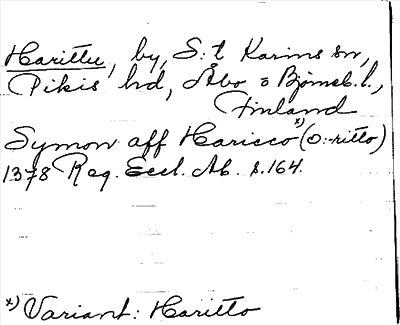 Harittu, by, S:t Karins sn,
Pikis hd, Åbo o Björneb. l.,
Finland
Symon aff Haricco x) (o: -ritto)
1378 Reg. Eccl. Ab. s. 164.
x) Variant: Haritto